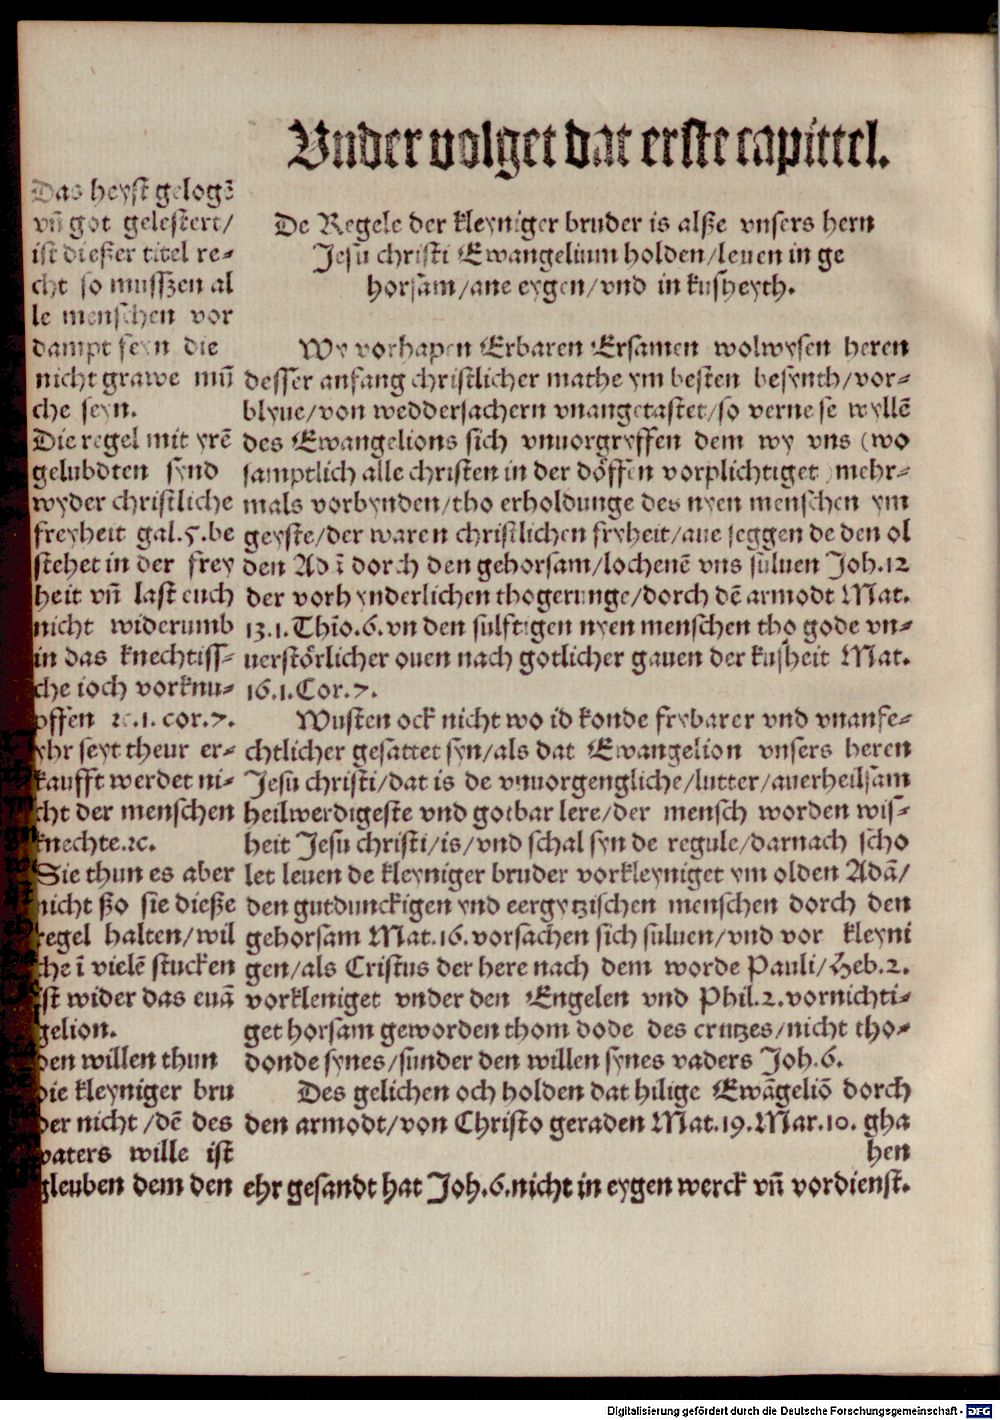 Vnder volget dat erste capittel.
De Regele der kleyniger bruder is alße vnsers hern
Jesu christi Ewangelium holden/leuen in ge
horsam/ane eygen/vnd in kusheyth.
Wy vorhapen Erbaren Ersamen wolwysen heren
desser anfang christlicher mathe ym besten besynth/vor-
blyue/von weddersachern vnangetastet/so verne se wyllē
des Ewangelions sich vnuorgryffen dem wy vns (wo
samptlich alle christen in der döffen vorplichtiget) mehr-
mals vorbynden/tho erholdunge des nyen menschen ym
geyste/der waren christlichen fryheit/aue seggen de den ol
den Adā dorch den gehorsam/lochenē vns suluen Joh.12
der vorhynderlichen thogerunge/dorch dē armodt Mat.
13.1.Thio.6.vn den sulftigen nyen menschen tho gode vn-
uerstörlicher ouen nach gotlicher gauen der kusheit Mat.
16.1.Cor.7.
Wusten ock nicht wo id konde frybarer vnd vnanfe-
chtlicher gesattet syn/als dat Ewangelion vnsers heren
Jesu christi/dat is de vnuorgengliche/lutter/auerheilsam
heilwerdigeste vnd gotbar lere/der mensch worden wis-
heit Jesu christi/is/vnd schal syn de regule/darnach scho
let leuen de kleyniger bruder vorkleyniget ym olden Adā/
den gutdunckigen vnd eergytzischen menschen dorch den
gehorsam Mat.16.vorsachen sich suluen/vnd vor kleyni
gen/als Cristus der here nach dem worde Pauli/Heb.2.
vorkleniget vnder den Engelen vnd Phil.2.vornichti-
get horsam geworden thom dode des crutzes/nicht tho-
donde synes/sunder den willen synes vaders Joh.6.
Des gelichen och holden dat hilige Ewāgeliō dorch
den armodt/von Christo geraden Mat.19.Mar.10. gha
hen
Das heyst gelogē
vn̄ got gelestert/
ist dießer titel re-
cht so mussßen al
le menschen vor
dampt seyn die
nicht grawe mū
che seyn.
Die regel mit yrē
gelubdten synd
wyder christliche
freyheit gal.5.be
stehet in der frey
heit vn̄ last euch
nicht widerumb
in das knechtiss-
che ioch vorknu-
pffen ꝛc.1.cor.7.
yhr seyt theur er-
kaufft werdet ni-
cht der menschen
knechte.ꝛc.
Sie thun es aber
nicht ßo sie dieße
regel halten/wil
che ī vielē stucken
ist wider das euā
gelion.
den willen thun
die kleyniger bru
der nicht/dē des
vaters wille ist
gleuben dem den ehr gesandt hat Joh.6.nicht in eygen werck vn̄ vordienst.
Digitalisierung gefördert durch die Deutsche Forschungsgemeinschaft - DFG